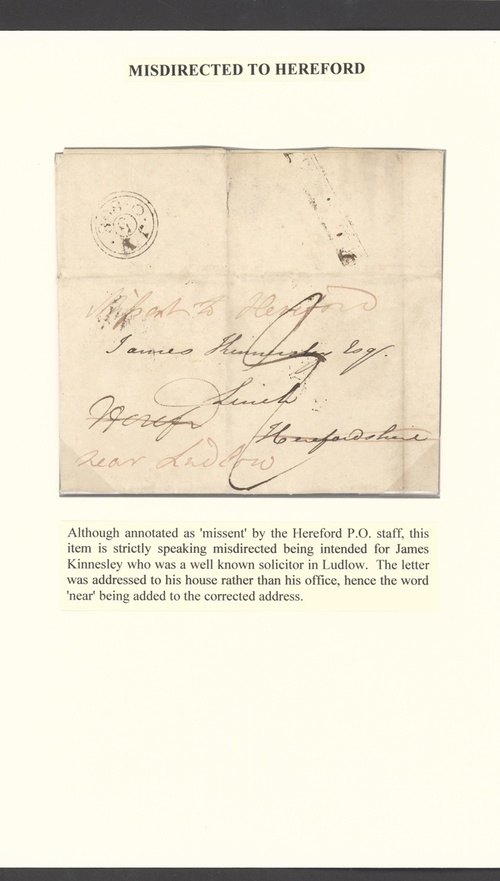 MISDIRECTED TO HEREFORD
Missent to Hereford
James Kinnersley Esqr.
Hereford
Herefordshire
near Ludlow
Although annotated as 'missent' by the Hereford P.O. staff, this
item is strictly speaking misdirected being intended for James
Kinnesley who was a well known solicitor in Ludlow. The letter
was addressed to his house rather than his office, hence the word
'near' being added to the corrected address.